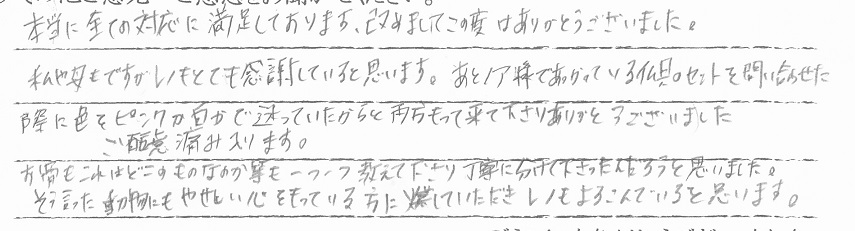 本当に全ての対応に満足しております、改めましてこの度はありがとうございました。
私や母もですがレノもとても感謝していると思います。あとノア様であつかっている仏具のセットを問い合わせた
際に色をピンクか白かで迷っていたからと両方もって来て下さりありがとうございました
ご配慮痛み入ります。
お骨もこれはどこのものなのか等も一つ一つ教えて下さり丁寧に分けて下さった人だろうと思いました。
そう言った動物にもやさしい心をもっている方に 燃していただき レノもよろこんでいると思います。